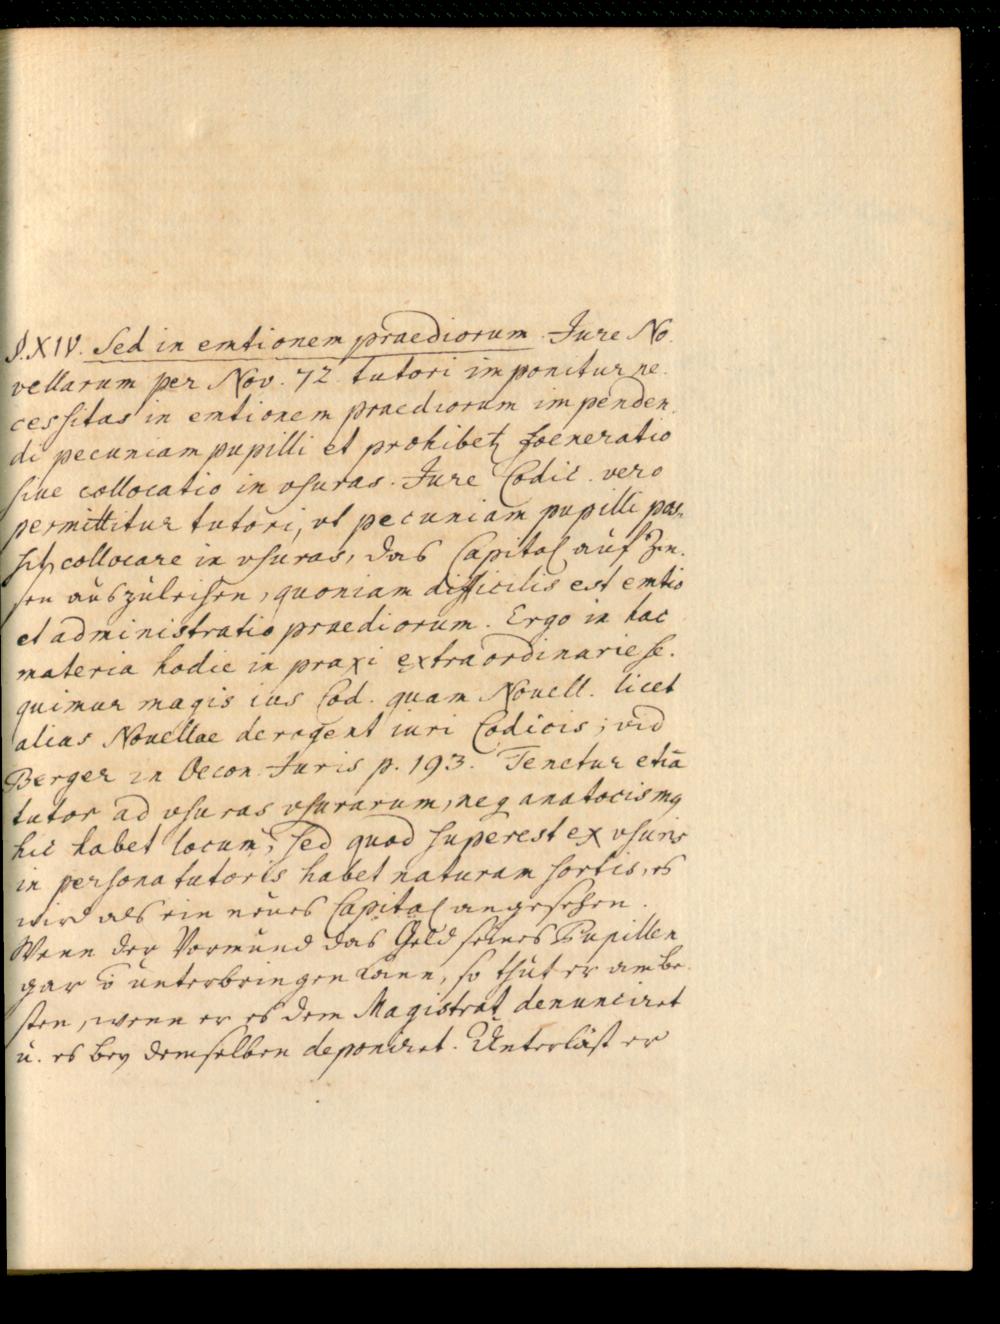 §. XIV. Sed in emtionem praediorum. Jure No
vellarum per Nov. 72 tutori imponitur ne.
cessitas in emtionem praediorum impenden
di pecuniam pupilli et prohibetʒ foeneratio
sive collocatio in vsuras. Jure Codic. vero
permittitur tutori, vt pecuniam pupilli pos.
sitʒ collocare in vsuras, das Capital auf Zin.
sen auszuleihen, quoniam difficilis est emtio
et administratio praediorum. Ergo in hac
materia hodie in praxi extraordinarie se.
quimur magis ius Cod. quam Novell. licet
alias Novellae derogent iuri Codicis; vid
Berger in Oecon. Juris p. 193. Tenetur etiā
tutor ad vsuras vsurarum, neq anatocismq
hic habet locum, sed quod superest ex vsuris
in persona tutoris habet naturam sortis, es
wird als ein neues Capital angesehen.
Wenn der Vormund das Geld seines Pupillen
gar õ unterbringen kann, so thut er am be
sten, wenn er es dem Magistrat denunciret
u. es bey demselben deponiret. Unterläst er